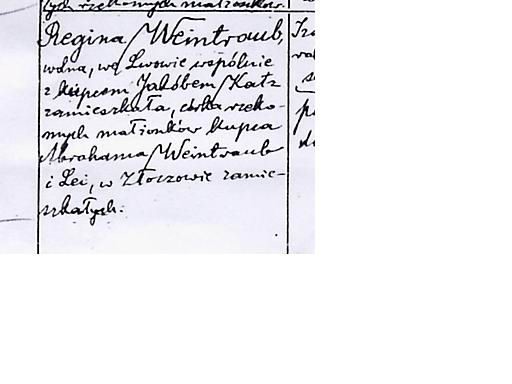 tych rzekomych małżonków.
Regina Weintraub,
wolna, we Lwowie wspólnie
z kupcem Jakóbem Katz
zamieszkała, córka rzeko-
mych małżonków kupca
Abrahama Weintraub
i Lei, w Złoczowie zamie-
szkałych.